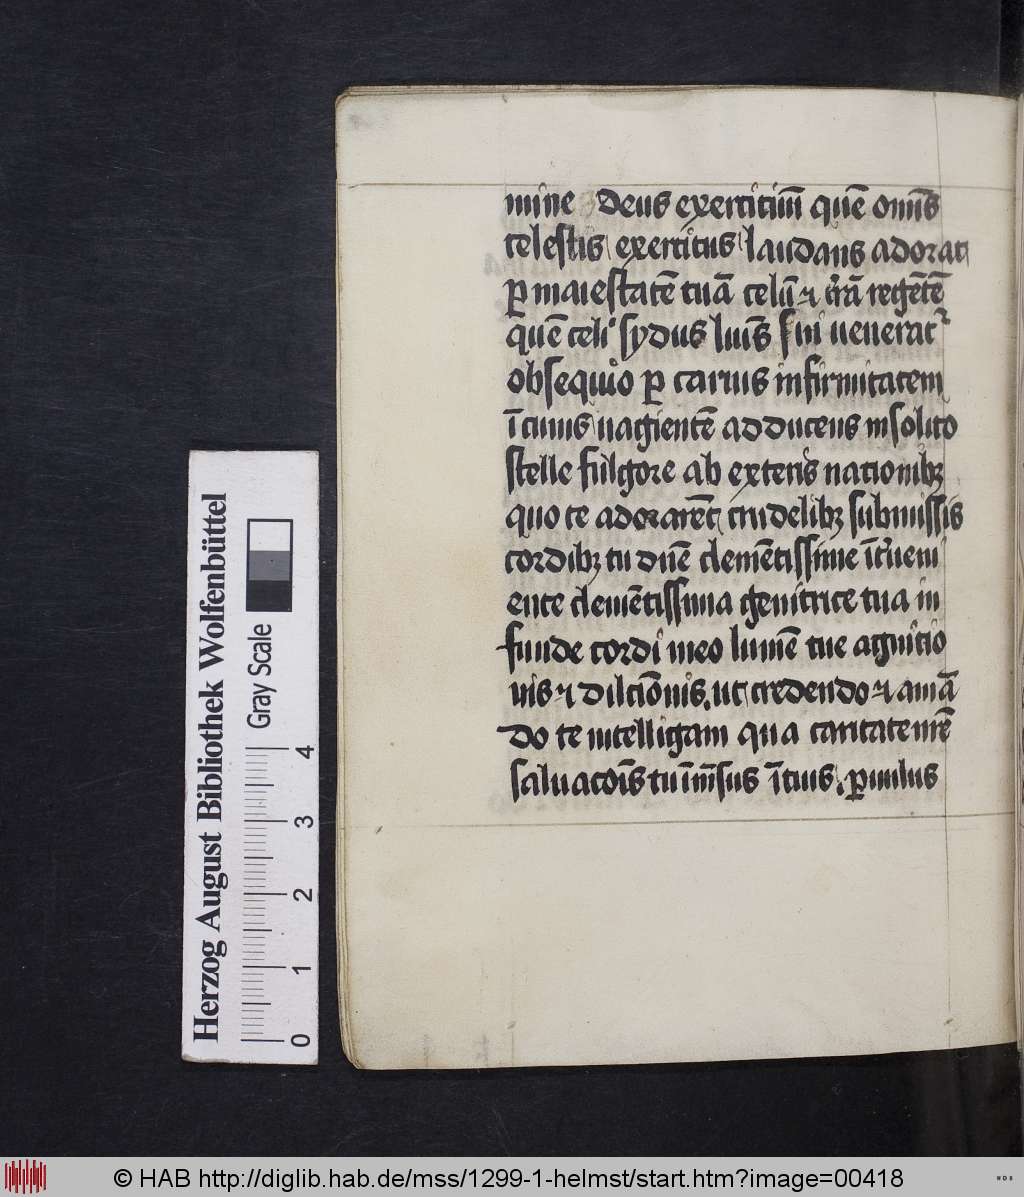 mine deus exercitiuū quē om̄s
celestis exercitus laudans adorat
ꝑ maiestatē tuā celū ⁊ t̄rā regētē
quē celi sydus luīs sui uenerat᷑
obsequio ꝑ carnis infirmitatem
ī cunis uagientē adducens insolito
stelle fulgore ab exteris nationibꝫ
quo te adorarēt crudelibꝫ submissis
cordibꝫ tu dn̄e clemētissime īt̾ueni
ente clemētissima genitrice tua in
funde cordi meo lumē tue agnitio
nis ⁊ dilctiōnis. ut credendo ⁊ amā
do te intelligam qua caritate nr̄e
saluacōis tu īm̄sus ī cuis. ꝑuulus
Herzog August Bibliothek Wolfenbüttel
Gray Scale
0 1 2 3 4
© HAB http://diglib.hab.de/mss/1299-1-helmst/start.htm?image=00418